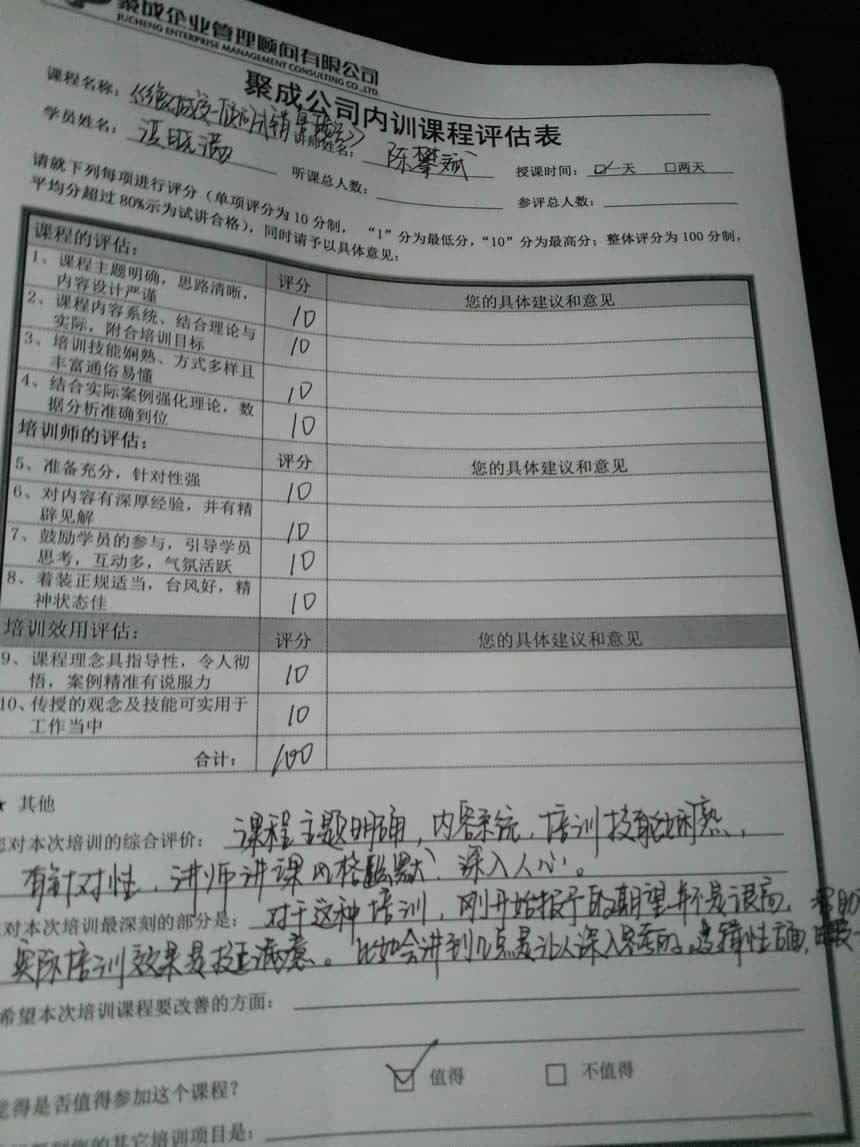 聚成企业管理顾问有限公司
JUCHENG ENTERPRISE MANAGEMENT CONSULTING CO.,LTD.
聚成公司内训课程评估表
课程名称：
学员姓名： 讲师姓名： 陈攀斌 授课时间： ☑一天 □两天
听课总人数： 参评总人数：
请就下列每项进行评分（单项评分为10分制，“1”分为最低分，“10”分为最高分；整体评分为100分制，
平均分超过80%示为试讲合格），同时请予以具体意见：
课程的评估： 评分 您的具体建议和意见
1、课程主题明确，思路清晰，
内容设计严谨 10
2、课程内容系统、结合理论与
实际，附合培训目标 10
3、培训技能娴熟、方式多样且
丰富通俗易懂 10
4、结合实际案例强化理论，数
据分析准确到位 10
培训师的评估： 评分 您的具体建议和意见
5、准备充分，针对性强 10
6、对内容有深厚经验，并有精
辟见解 10
7、鼓励学员的参与，引导学员
思考，互动多，气氛活跃 10
8、着装正规适当，台风好，精
神状态佳 10
培训效用评估： 评分 您的具体建议和意见
9、课程理念具指导性，令人彻
悟，案例精准有说服力 10
10、传授的观念及技能可实用于
工作当中 10
合计： 100
★ 其他
您对本次培训的综合评价： 课程主题明确，内容系统，培训技能娴熟，
有针对性，讲师讲课风格幽默、深入人心。
对本次培训最深刻的部分是： 对于这种培训，刚开始报予的期望并不是很高，
实际培训效果是挺满意。比如会讲到几点是让人深入思考的。逻辑性方面，
希望本次培训课程要改善的方面：
觉得是否值得参加这个课程？ ☑ 值得 □ 不值得
的其它培训项目是：